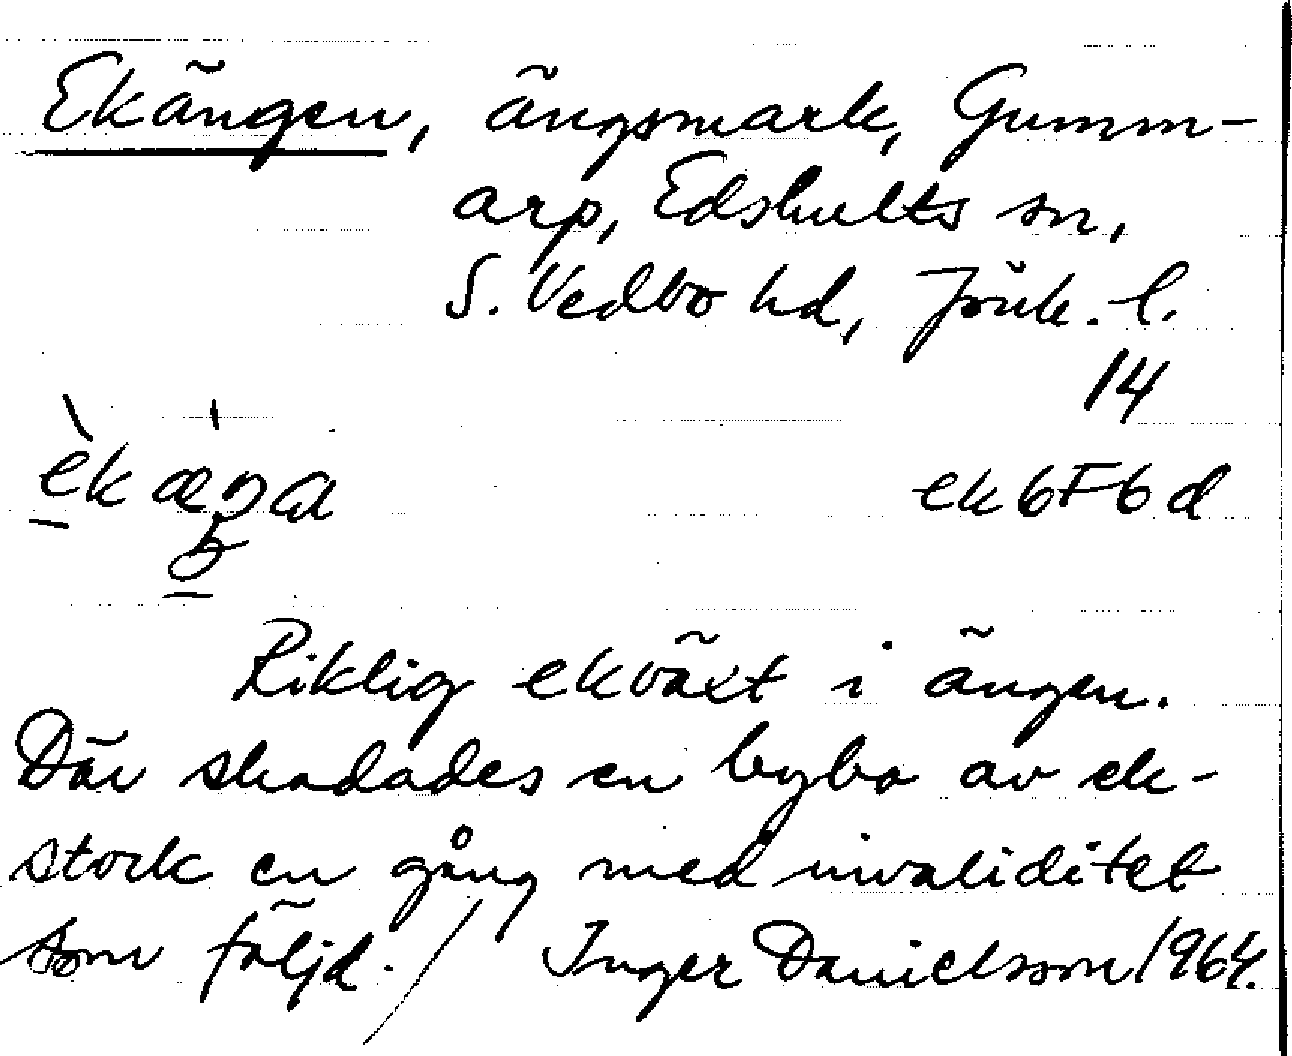 Ekängen, ängsmark, Gumm-
arp, Edshults sn,
S. Vedbo hd, Jönk. l.
14
èkæŋa
ek6F6d
Riklig ekväxt i ängen.
Där skadades en bybo av ek-
stock en gång med invaliditet
som följd. / Inger Danielsson 1964.